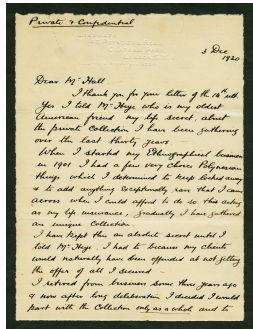 Private & Confidential
3 Dec
1920
Dear Mr Hall
I thank you for your letter of the 14th
Yes I told Mr Hoge who is my oldest
American friend my life secret, about
the private Collection I have been gathering
over the last thirty years
When I started my Ethnographical business
in 1901 I had a few very choice Polynesian
things which I determined to keep locked away
& to add anything exceptionally rare that I came
across when I could afford to do so this acting
as my life insurance, gradually I have gathered
an unique Collection.
I have kept this an absolute secret until I
told Mr Hoge. I had to because my clients
would naturally have been offended at not getting
the offer of all I secured
I retired from business some three years ago
& now after long deliberation I decided I would
part with the Collection only as a whole and to